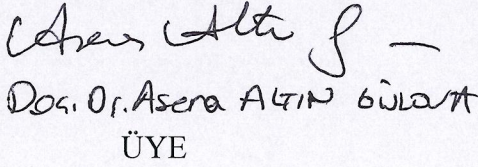 Doç. Dr. Asena ALTIN GÜLOVA
ÜYE